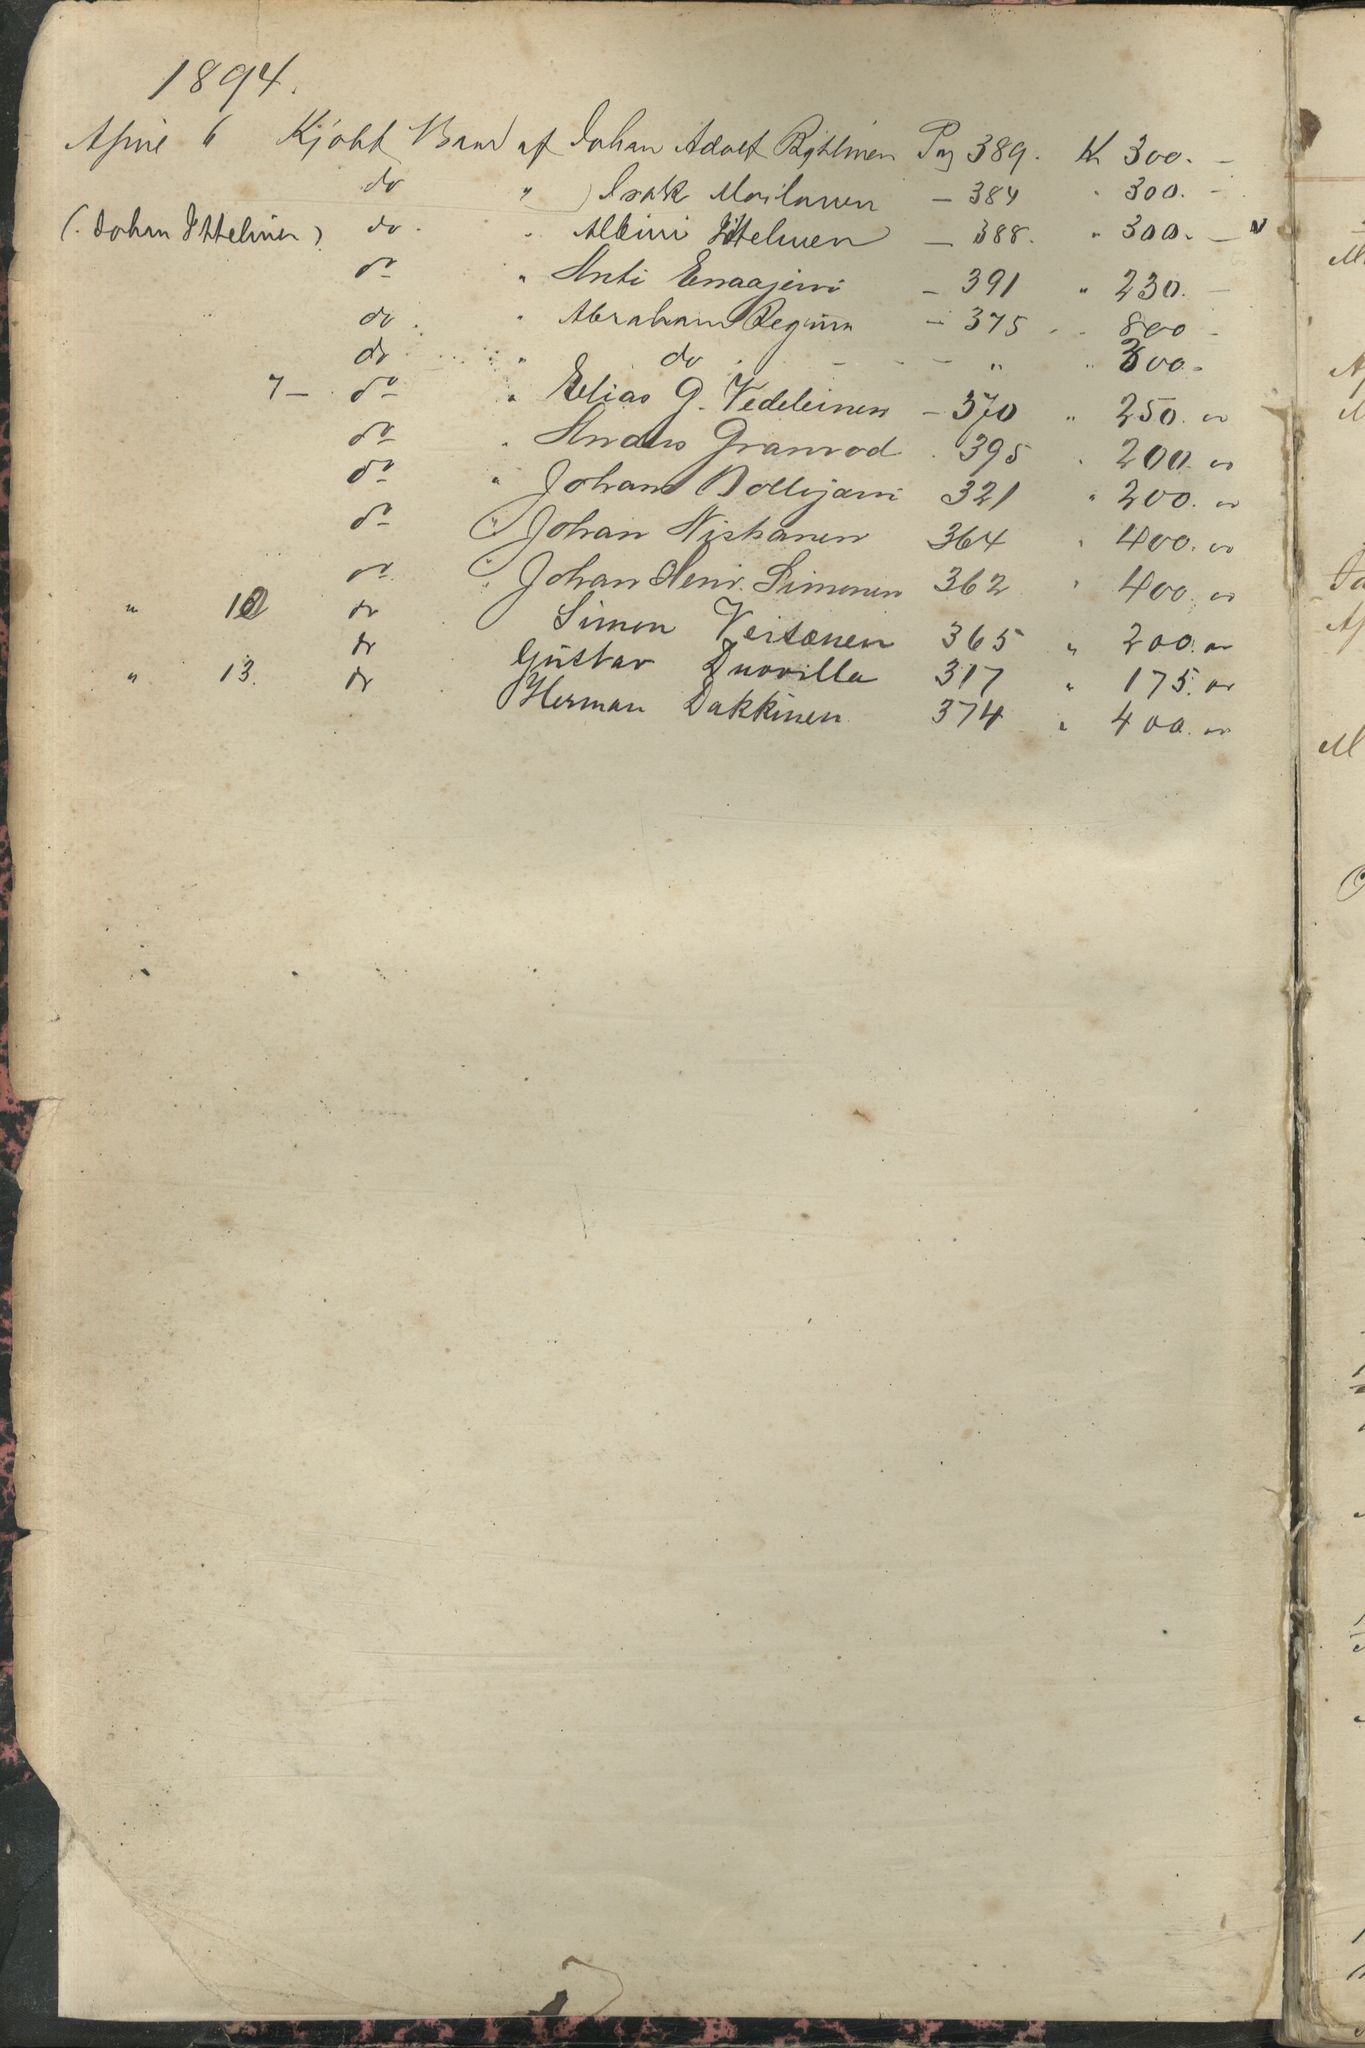 1894.
April 6 Kjøbt Baad af Johan Adolf Pag 389. Kr 300. –
do " Isak Moilanen – 384 " 300. –
(Johan Ittelinen) do " Albin Ittelinen – 388. " 300. –
do " Anti – 391 " 230. –
do " Abraham Regina – 375 " 800 –
do " do – – – " " 300. –
7 – do " Elias G. – 370 " 250. "
do " Anders Granrod " 395 " 200. "
do " Johan 321 " 200. "
do " Johan Niskanen 364 " 400. "
do " Johan Henr. Simonen 362 " 400. "
" 10 do Simon 365 " 200. "
do Gustav 317 " 175. "
" 13. do Herman Dakkinen 374 " 400. "